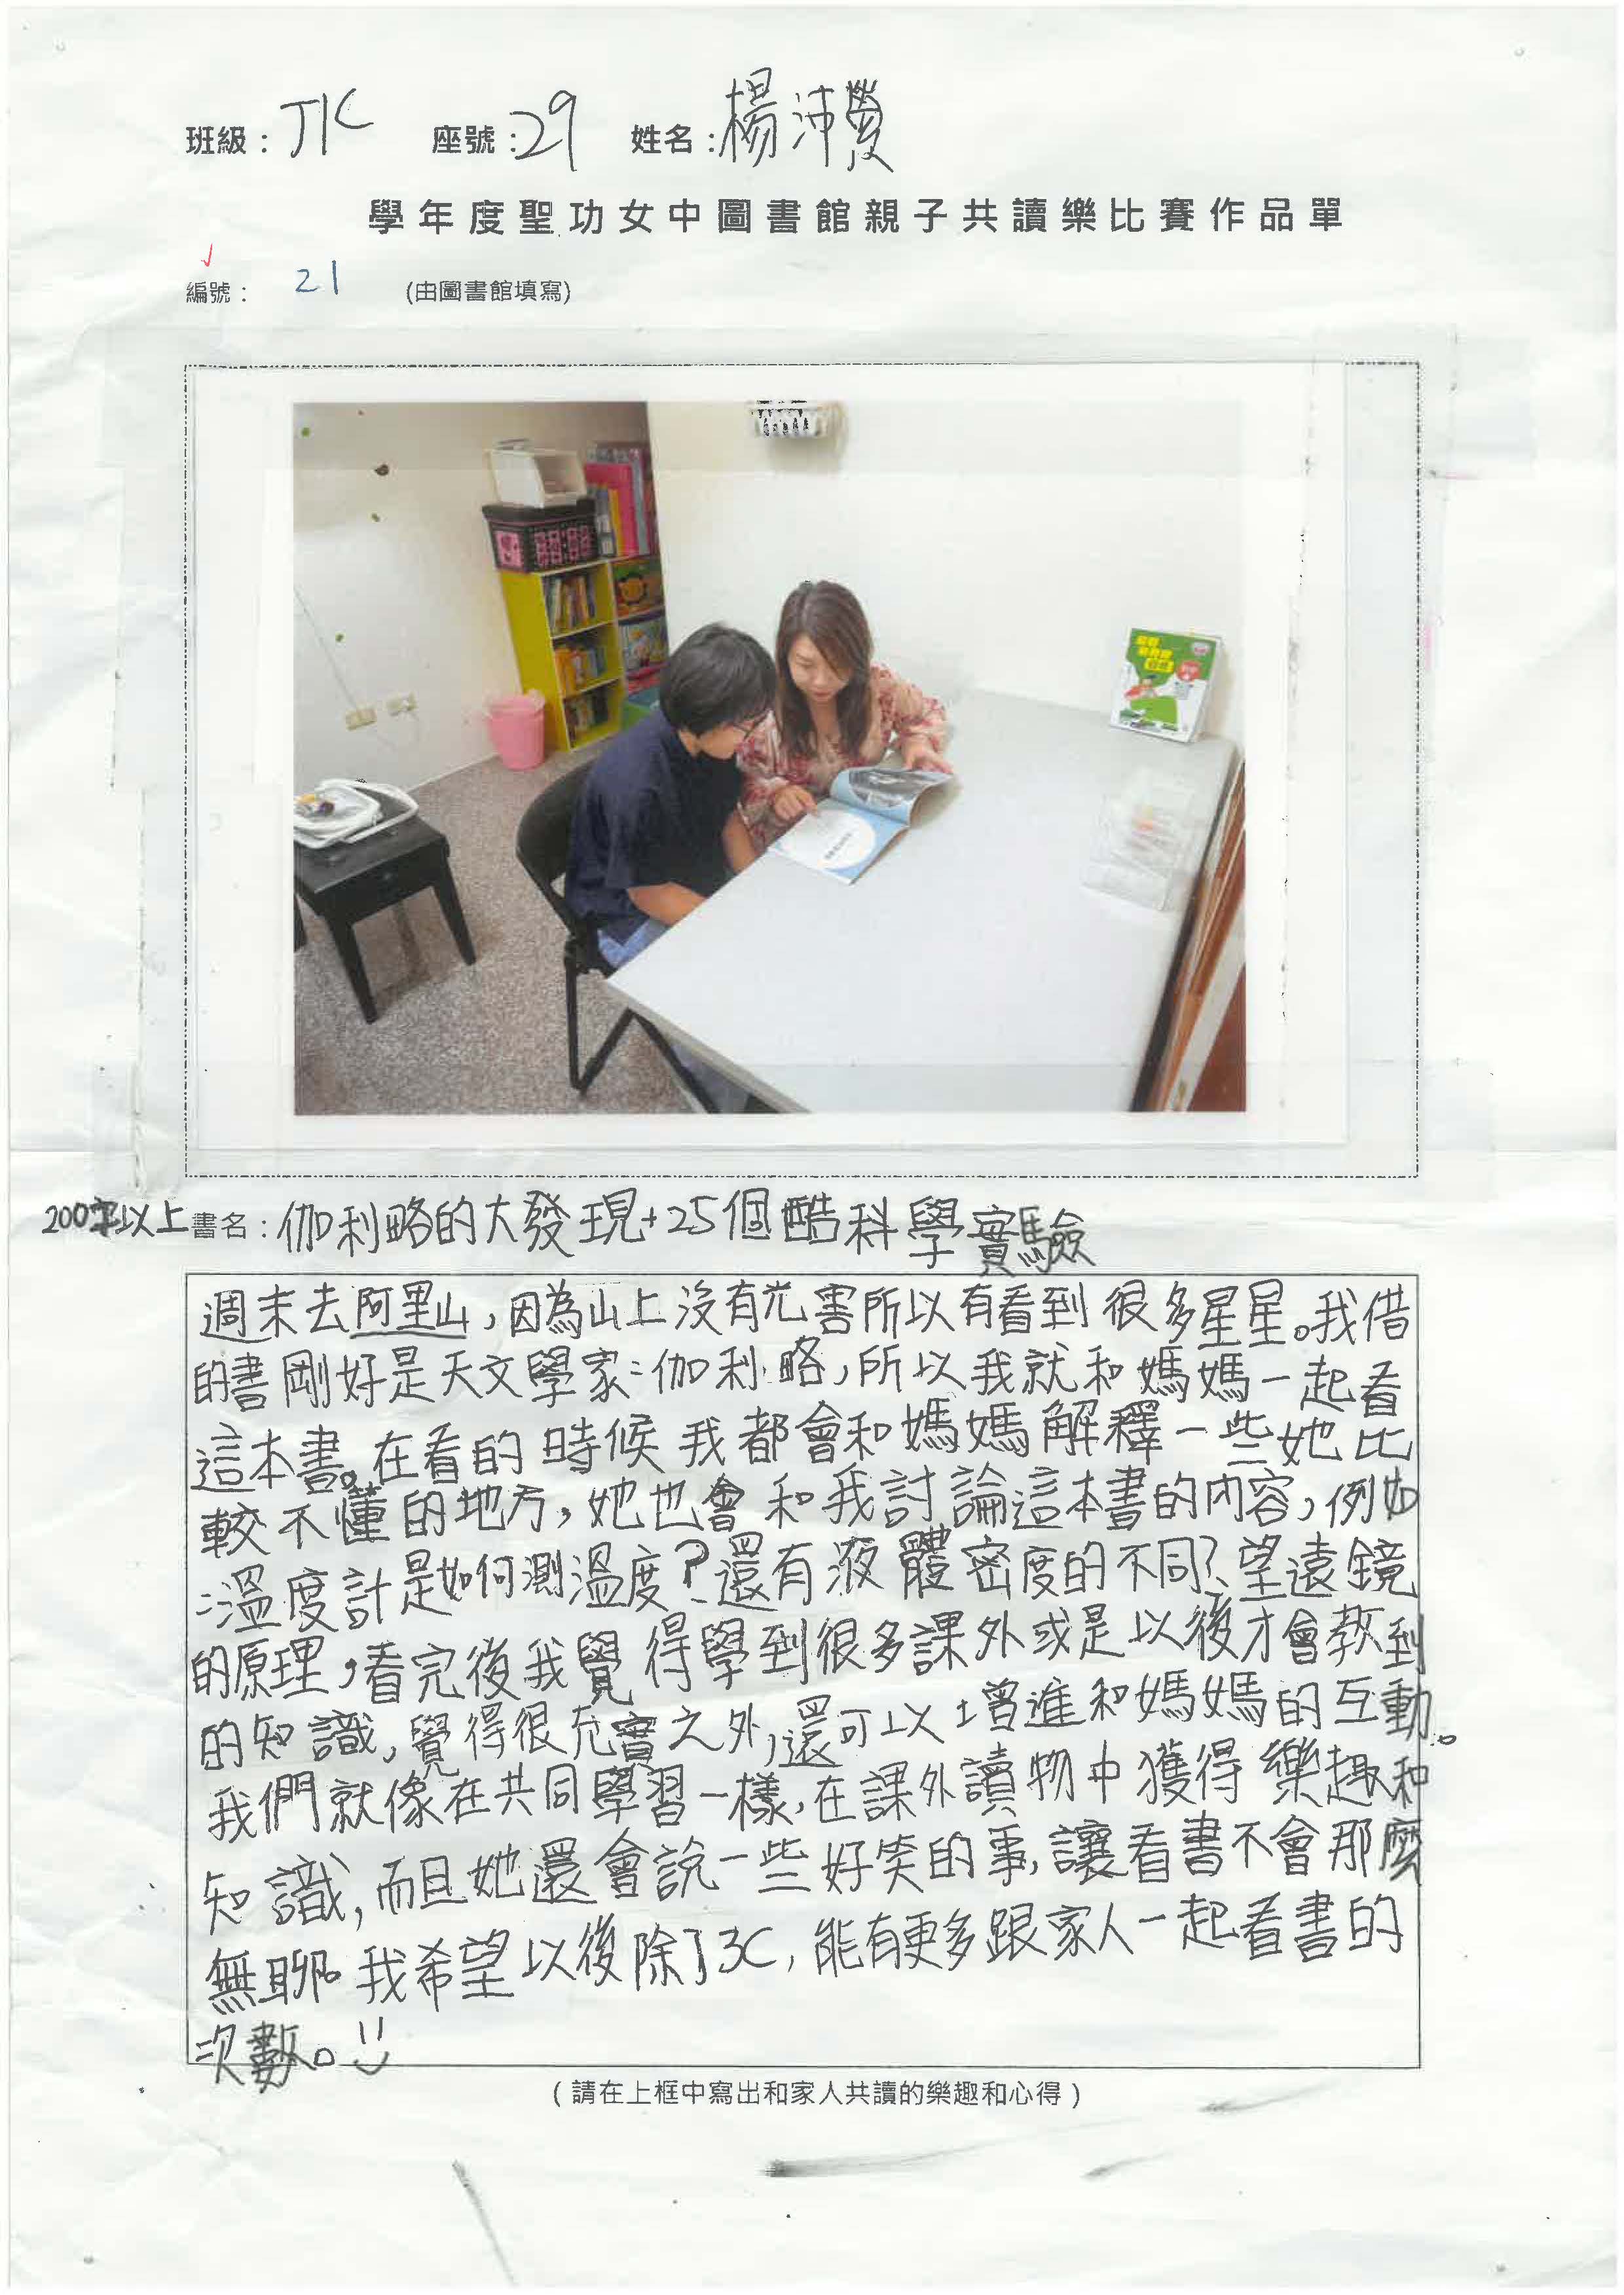 班級：J1C 座號：29 姓名：楊沛
學年度聖功女中圖書館親子共讀樂比賽作品單
編號： 21 (由圖書館填寫)
200字以上 書名：伽利略的大發現+25個酷科學實驗
週末去阿里山，因為山上沒有光害所以有看到很多星星。我借
的書剛好是天文學家：伽利略，所以我就和媽媽一起看
這本書。在看的時候我都會和媽媽解釋一些她比
較不懂的地方，她也會和我討論這本書的內容，例如
：溫度計是如何測溫度？還有液體密度的不同？、望遠鏡
的原理，看完後我覺得學到很多課外或是以後才會教到
的知識，覺得很充實之外，還可以增進和媽媽的互動。
我們就像在共同學習一樣，在課外讀物中獲得樂趣和
知識，而且她還會說一些好笑的事，讓看書不會那麼
無聊。我希望以後除了3C，能有更多跟家人一起看書的
次數。
(請在上框中寫出和家人共讀的樂趣和心得)